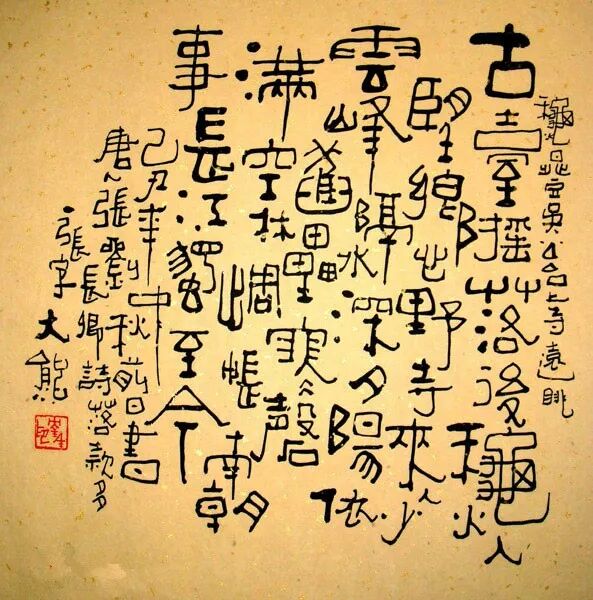 龝日登吳公台上寺遠眺
古臺搖落後龝入
望鄉心野寺來人少
雲峰隔水深夕陽依
舊壘寒磬
滿空林惆悵南朝
事長江獨至今
己丑年中秋前日書
唐人張劉長卿詩落款多
一張字大熊